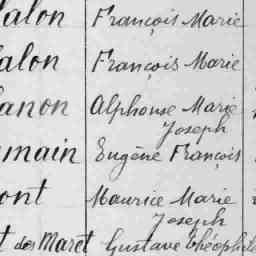 alon François Marie
alon François Marie
anon Alphonse Marie
Joseph
main Eugène François
ont Maurice Marie
Joseph
t des Maret Gustave Théophil